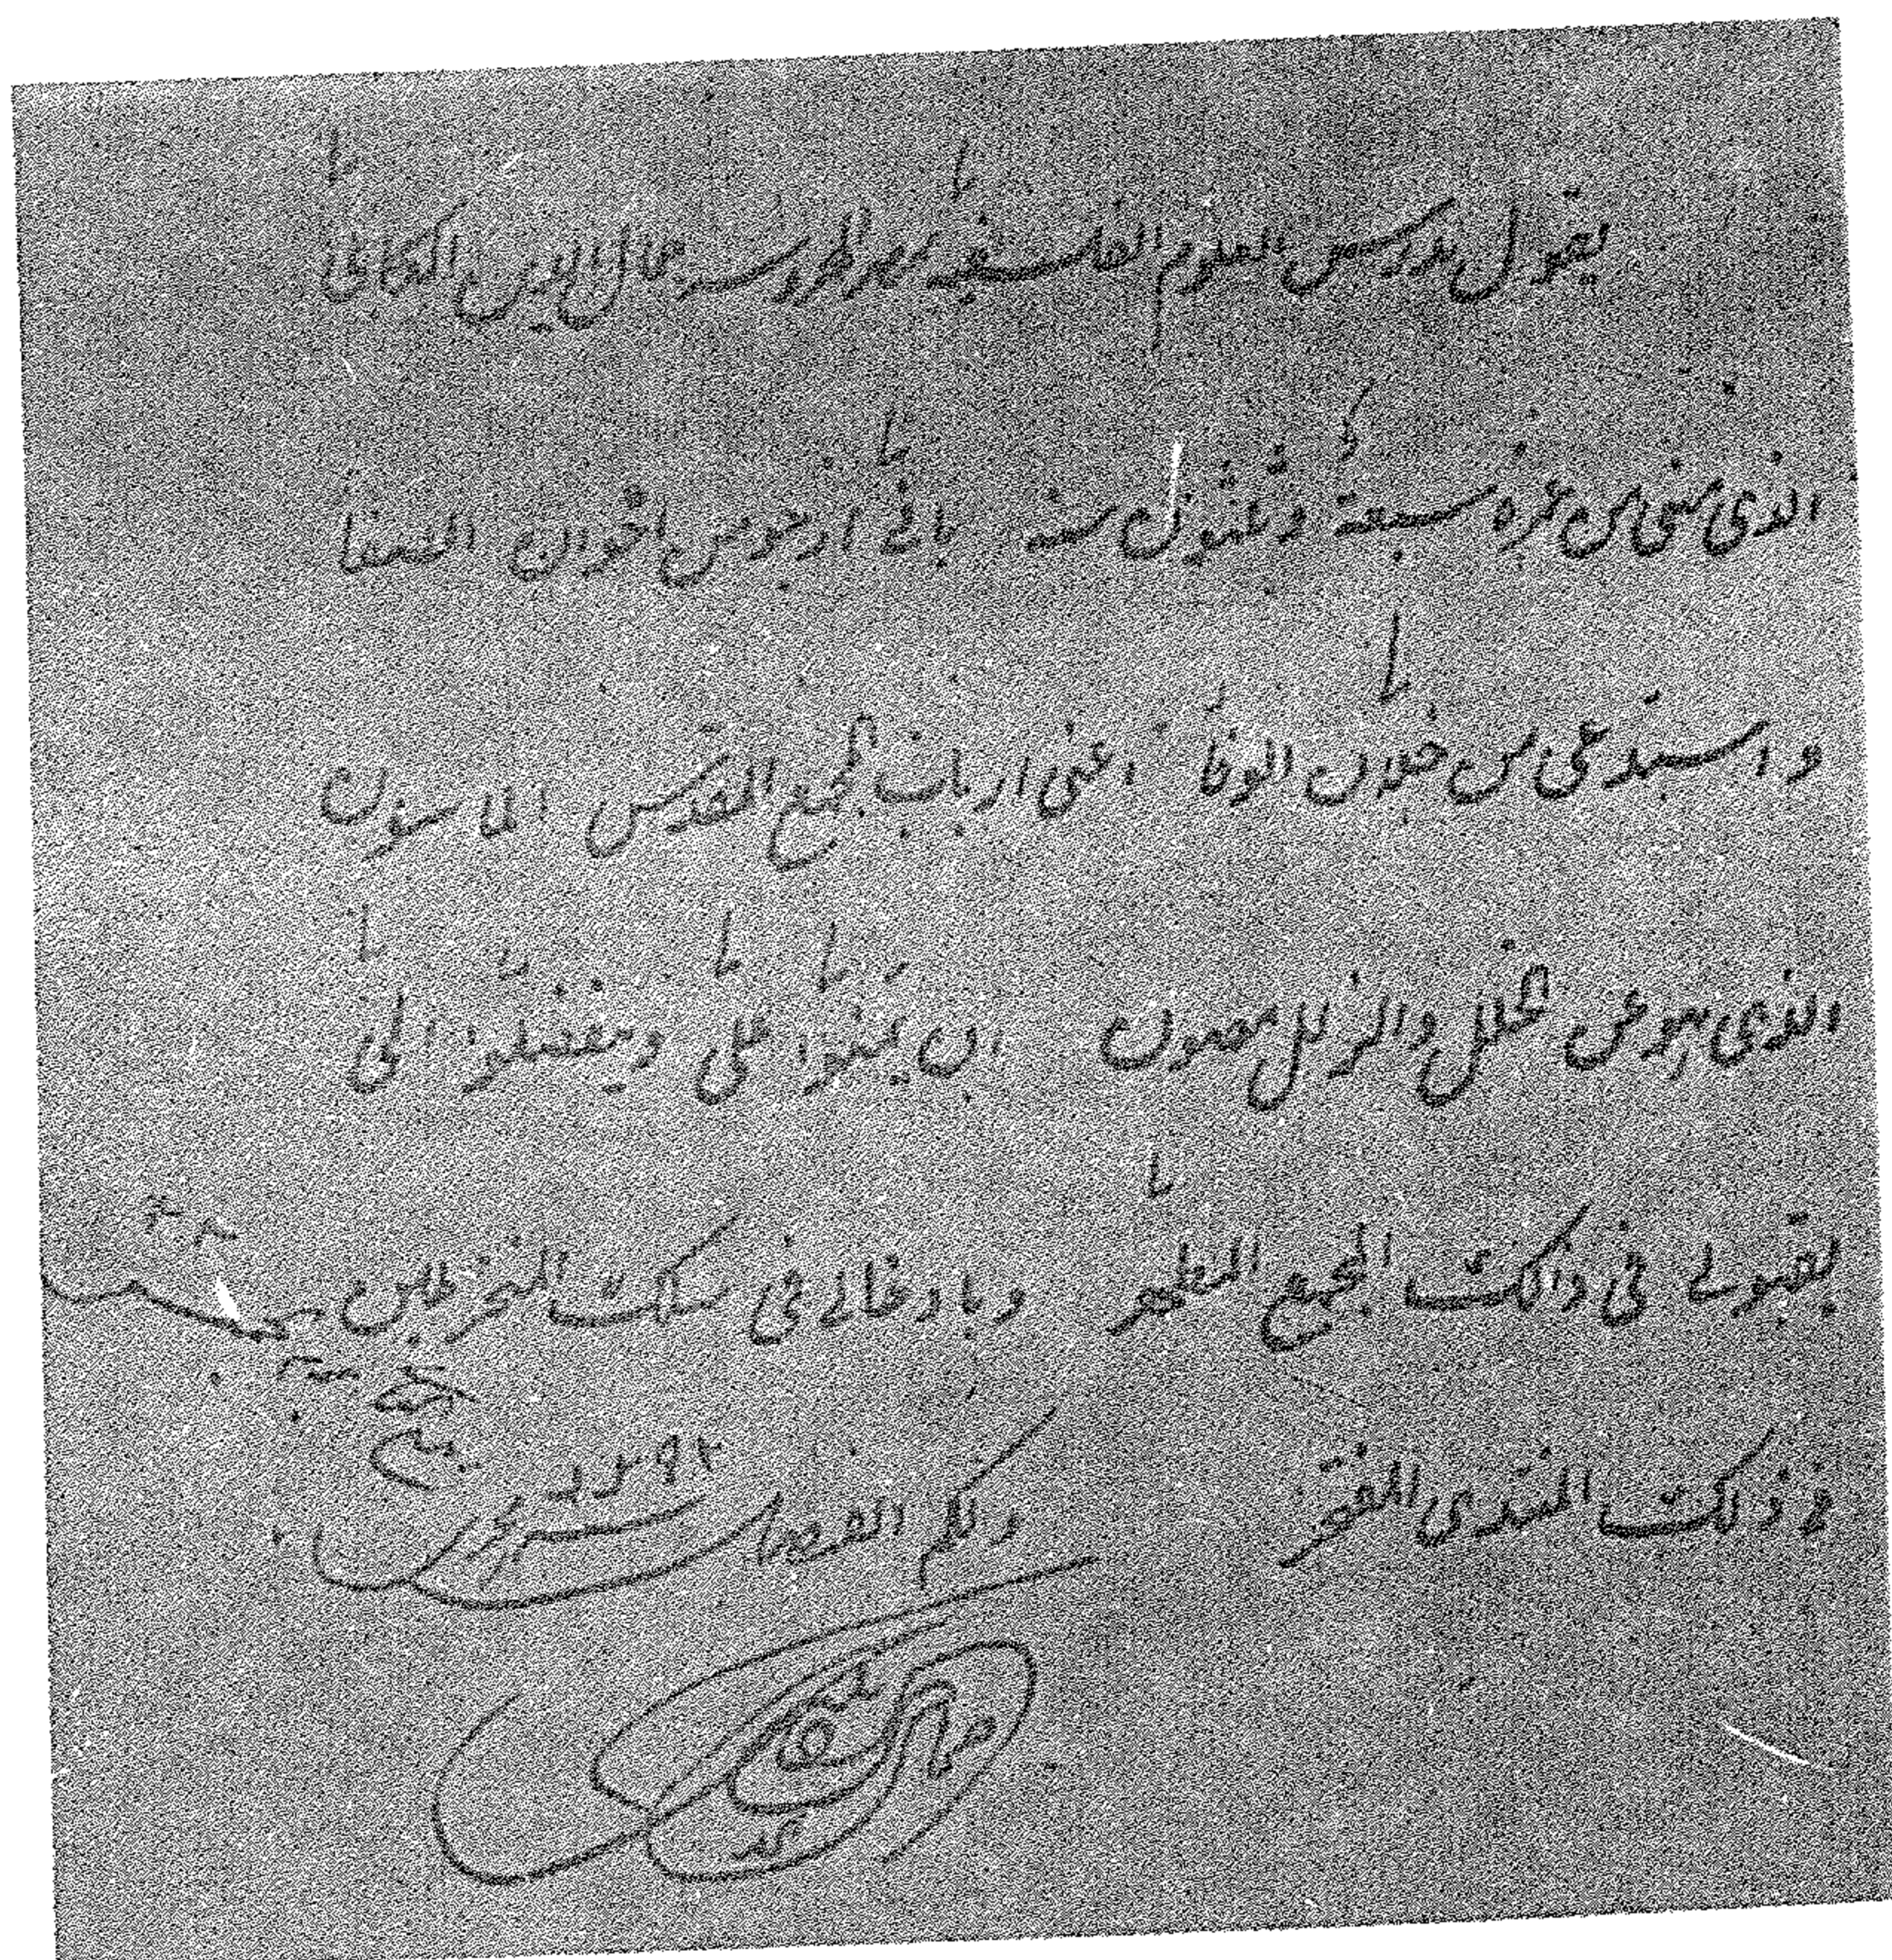 يقول مدرس العلوم الفلسفية بمصر المحروسة جمال الدين الكابلى
الذى مضى من عمره سبعة وثلثون سنة بانى ارجو من اخوان الصفا
واستدعى من خلان الوفا اعنى ارباب المجمع المقدس الماسون
الذى هو عن الخلل والزلل مصون ان يمنوا على ويتفضلوا الى
بقبولى فى ذالك المجمع المطهر وبادخالى فى سلك المنخرطين
فى ذلك المنتدى المفتخر ولكم الفضل